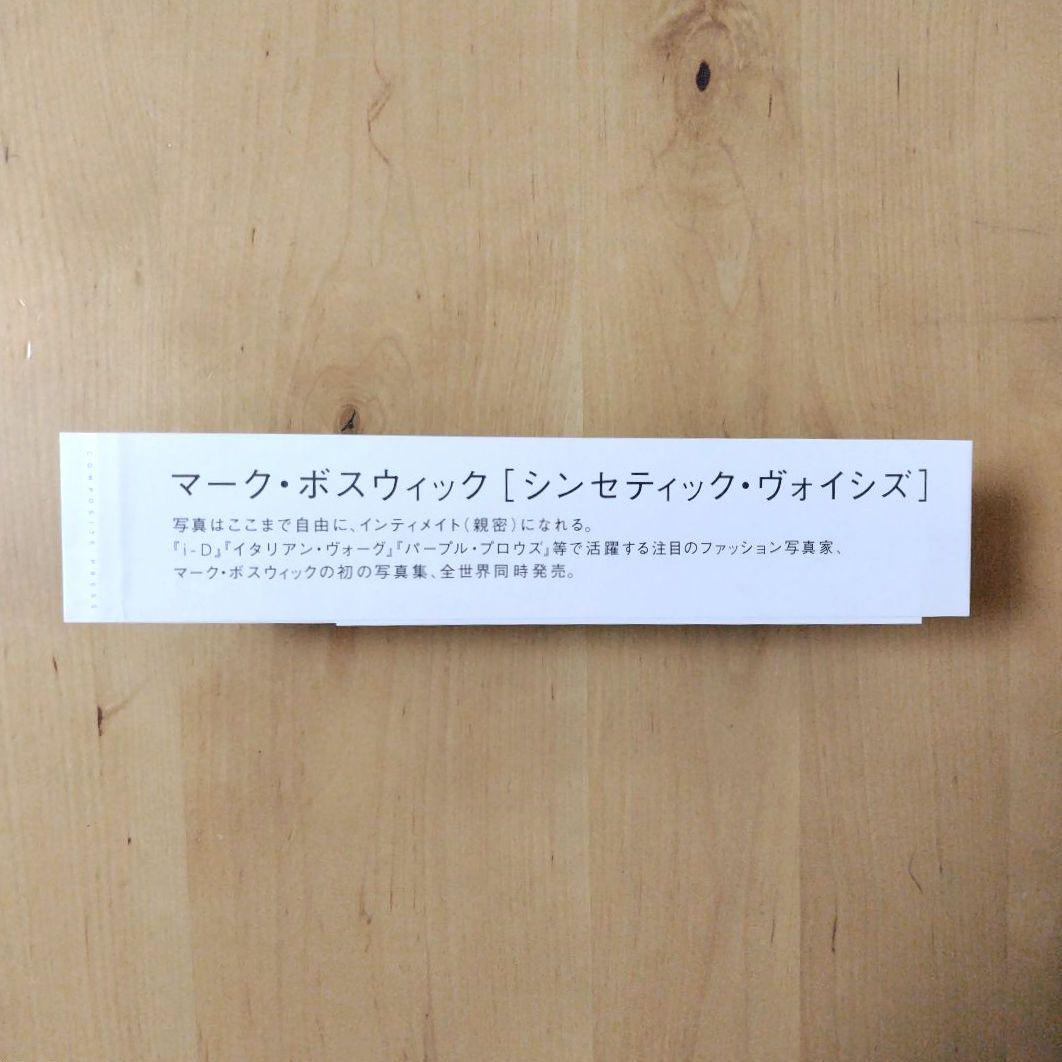 COMPOSITE PRESS
マーク・ボスウィック[シンセティック・ヴォイシズ]
写真はここまで自由に、インティメイト(親密)になれる。
『i-D』『イタリアン・ヴォーグ』『パープル・プロウズ』等で活躍する注目のファッション写真家、
マーク・ボスウィックの初の写真集、全世界同時発売。